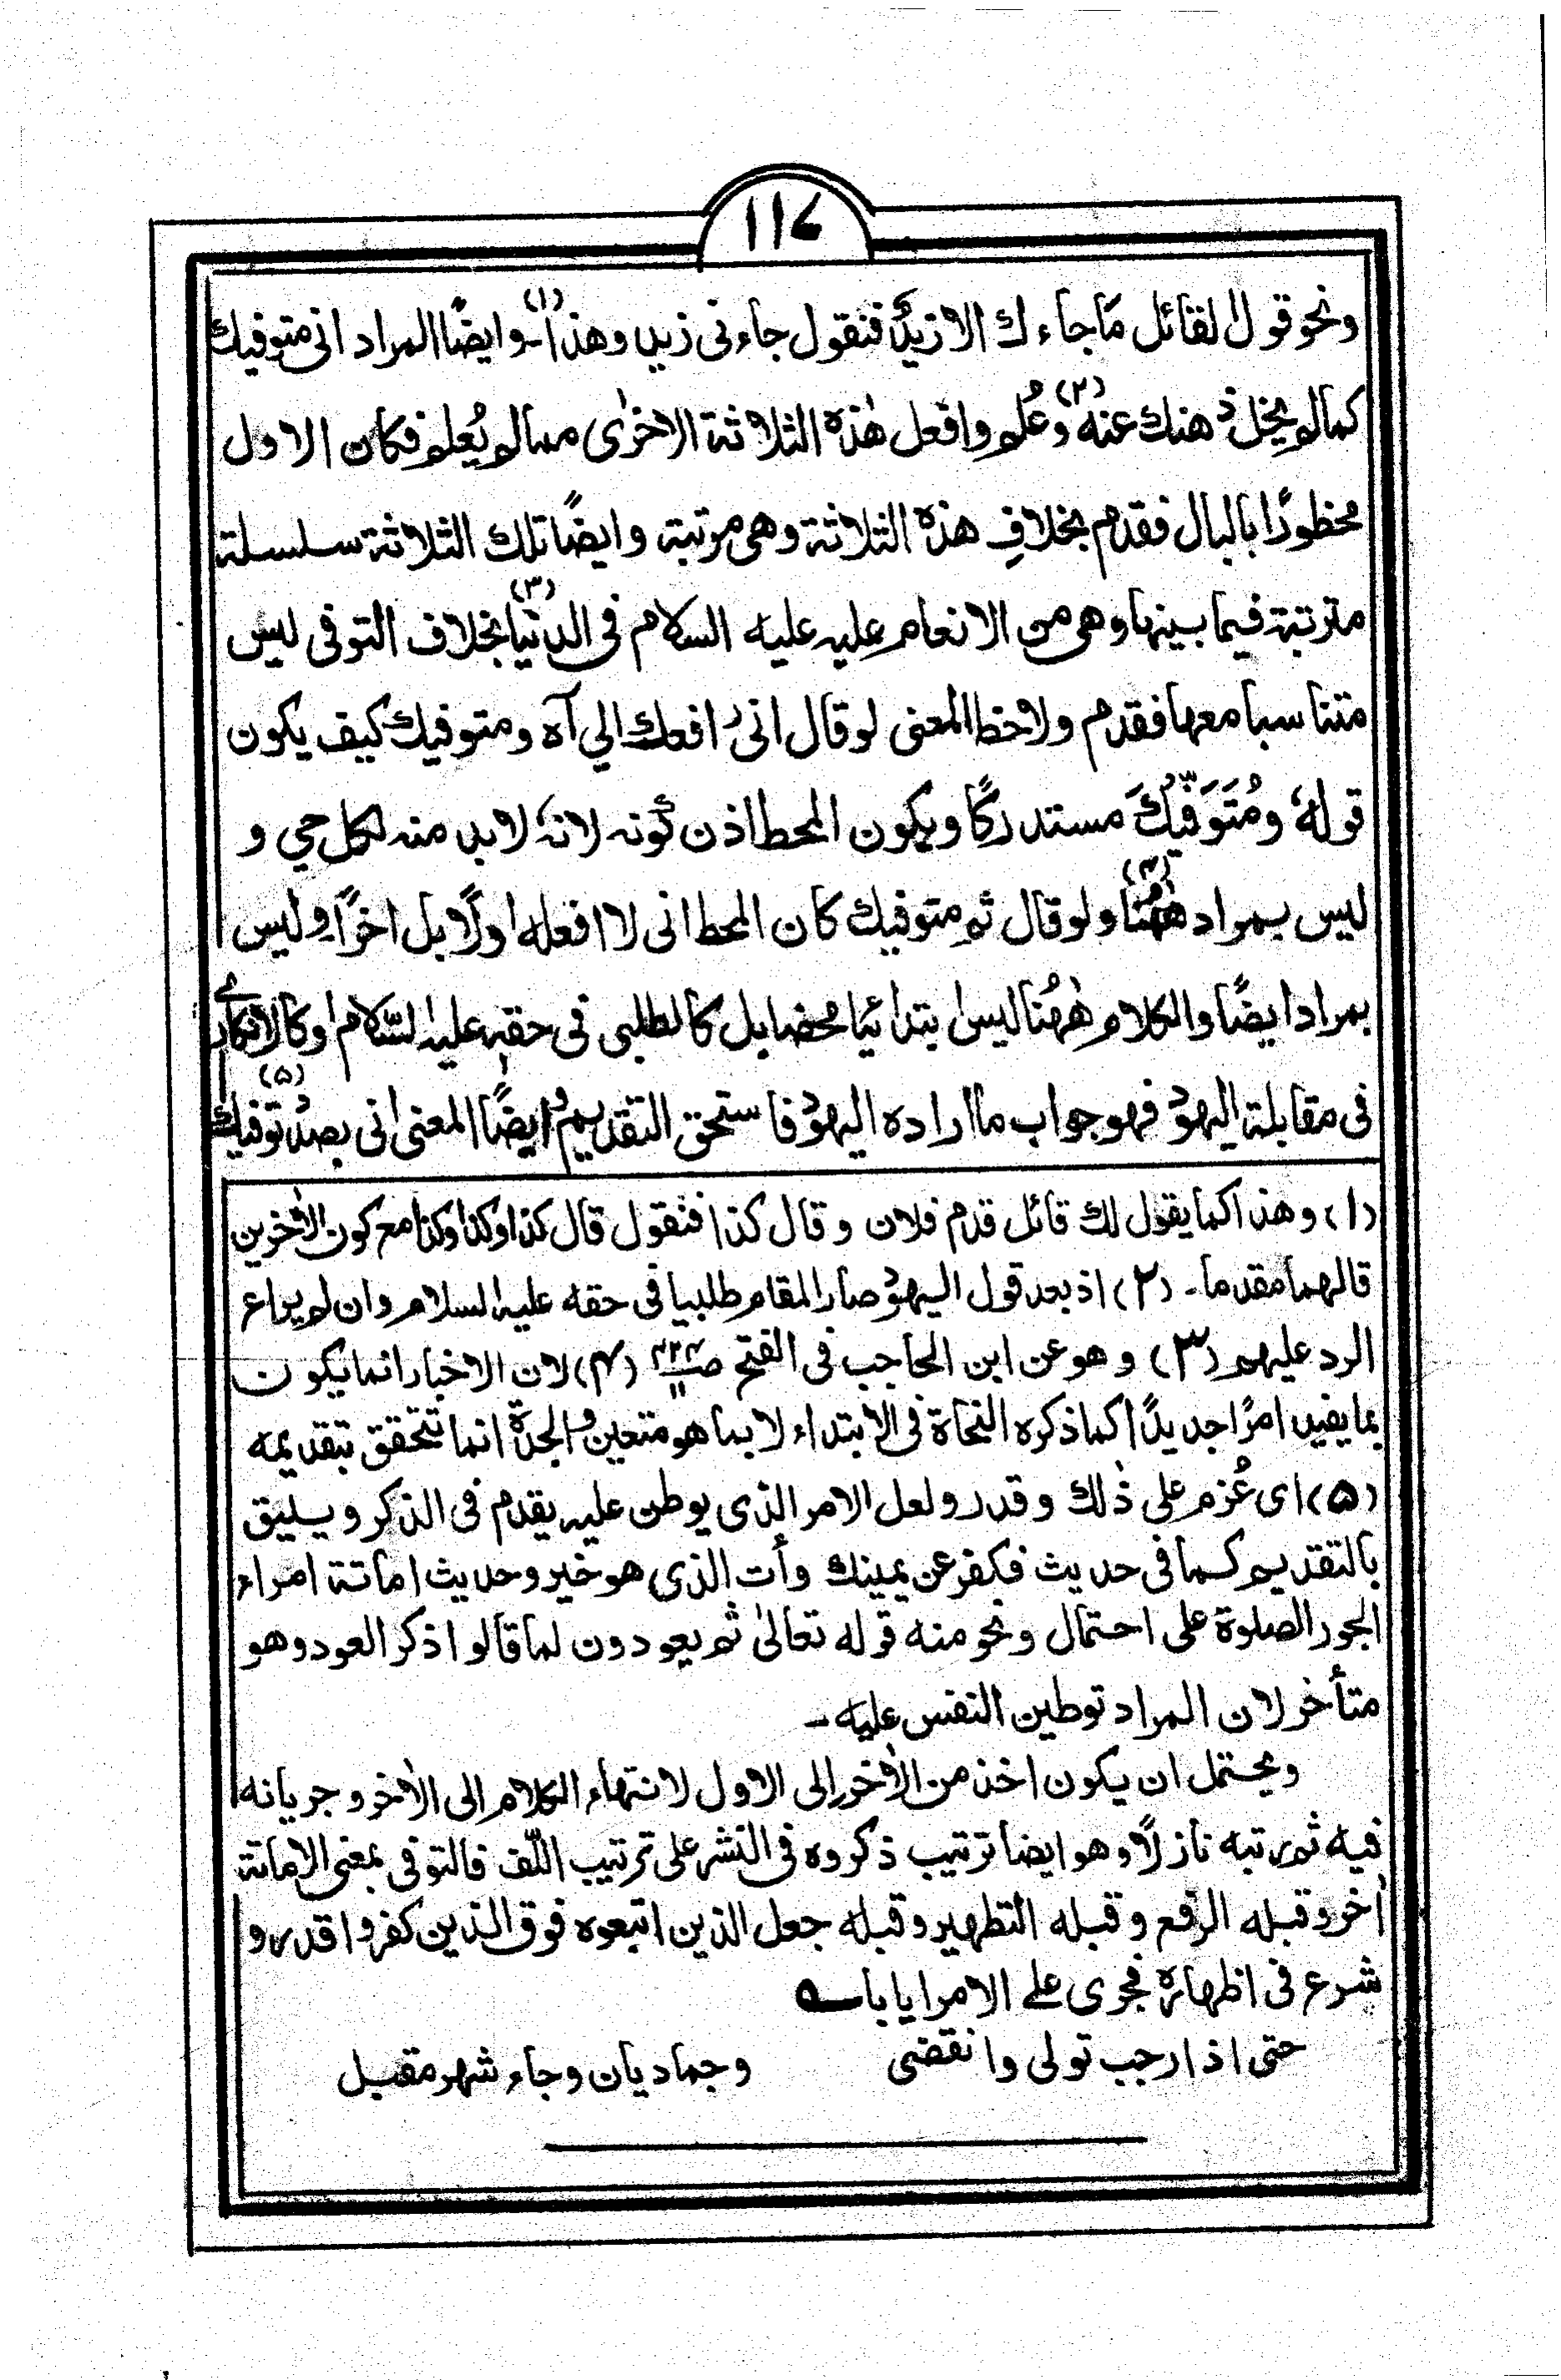 ۱۱۷
ونحو قول لقائل ما جاءك الا زيدٌ فنقول جاءنی زيد وهذا(۱)۔ وايضًا المراد انی متوفيك
كما لم يخل ذهنك عنه(۲) وعُلم وافعل هٰذه الثلاثة الاخرٰی مما لم يُعلم فكان الاول
محظورًا بالبال فقدم بخلافِ هذه الثلاثة وهی مرتبة وايضًا تلك الثلاثة سلسلة
مترتبة فيما بينها وهی من الانعام عليه عليه السلام فی الدنيا(۳) بخلاف التوفی ليس
متناسبا معها فقدم ولاحظ المعنی لو قال انی رافعك الي آه ومتوفيك كيف يكون
قولهٗ ومُتَوَفِّيْكَ مستدركًا ويكون المحط اذن كونه لانهٗ لابد منه لكل حي و
ليس بمراد هٰهُنا(۴) ولو قال ثم متوفيك كان المحط انی لا افعله اولًا بل اخرًا وليس
بمراد ايضًا والكلام هٰهُنا ليس ابتدائيا محضا بل كالطلبی فی حقهٖ عليه السّلام او كالانكاری
فی مقابلة اليهود فهو جواب ما اراده اليهود فاستحق التقديم وايضًا المعنی انی بصدد(۵) توفيك
(۱) وهذا كما يقول لك قائل قدم فلان وقال كذا فنقول قال كذا وكذا وكذا مع كون الاٰخرين
قالهما مقدما۔ (۲) اذ بعد قول اليهود صار المقام طلبيا فی حقه عليه السلام وان لم يراع
الرد عليهم (۳) وهو عن ابن الحاجب فی الفتح (۴) لان الاخبار انما يكون
بما يفيد امرًا جديدًا كما ذكره النحاة فی الابتداء لا بما هو متعين والجدّة انما تتحقق بتقديمه
(۵) ای عُزم علی ذٰلك وقدر ولعل الامر الذی يوطن عليه يقدم فی الذكر ويليق
بالتقديم كما فی حديث فكفر عن يمينك وأت الذی هو خير وحديث اماتة امراء
الجور الصلوة علی احتمال ونحو منه قوله تعالیٰ ثم يعودون لما قالوا ذكر العود وهو
متأخر لان المراد توطين النفس عليه۔
ويحتمل ان يكون اخذ من الاٰخر الی الاول لانتهاء الكلام الی الاٰخر وجريانه
فيه ثم رتبه نازلًا وهو ايضا ترتيب ذكروه فی النشر علی ترتيب اللّف فالتوفی بمعنی الاماتة
اٰخر وقبله الرفع وقبله التطهير وقبله جعل الذين اتبعوه فوق الذين كفروا قدر و
شرع فی اظهاره فجری علے الامر ايابا ؎
حتی اذا رجب تولی وانقضی وجماديان وجاء شهر مقبل